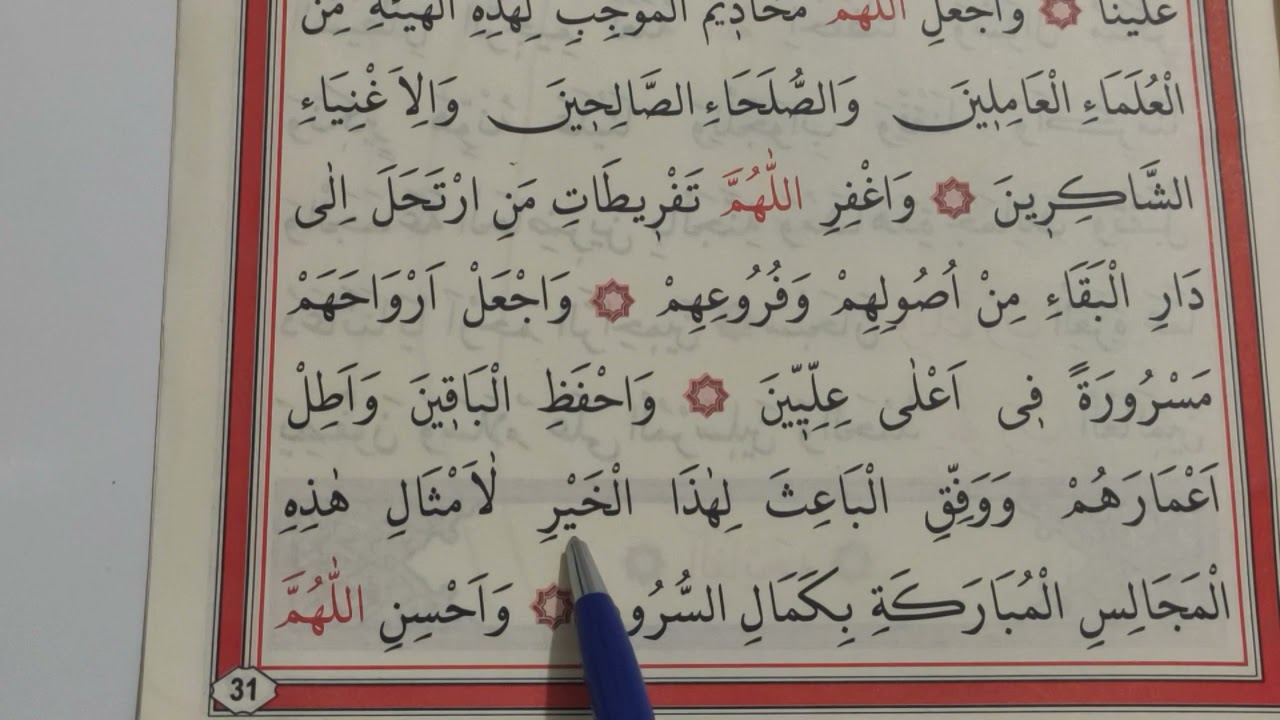 عَلَيْنَا ۞ وَاجْعَلِ اللّٰهُمَّ مَخَادِيمَ الْمُوجِبِ لِهٰذِهِ الْهَيْئَةِ مِنَ
الْعُلَمَاءِ الْعَامِلِينَ وَالصُّلَحَاءِ الصَّالِحِينَ وَالِاَغْنِيَاءِ
الشَّاكِرِينَ ۞ وَاغْفِرِ اللّٰهُمَّ تَفْرِيطَاتِ مَنِ ارْتَحَلَ اِلٰى
دَارِ الْبَقَاءِ مِنْ اُصُولِهِمْ وَفُرُوعِهِمْ ۞ وَاجْعَلْ اَرْوَاحَهَمْ
مَسْرُورَةً فِى اَعْلٰى عِلِّيِّينَ ۞ وَاحْفَظِ الْبَاقِينَ وَاَطِلْ
اَعْمَارَهُمْ وَوَفِّقِ الْبَاعِثَ لِهٰذَا الْخَيْرِ لِاَمْثَالِ هٰذِهِ
الْمَجَالِسِ الْمُبَارَكَةِ بِكَمَالِ السُّرُورِ ۞ وَاَحْسِنِ اللّٰهُمَّ
31